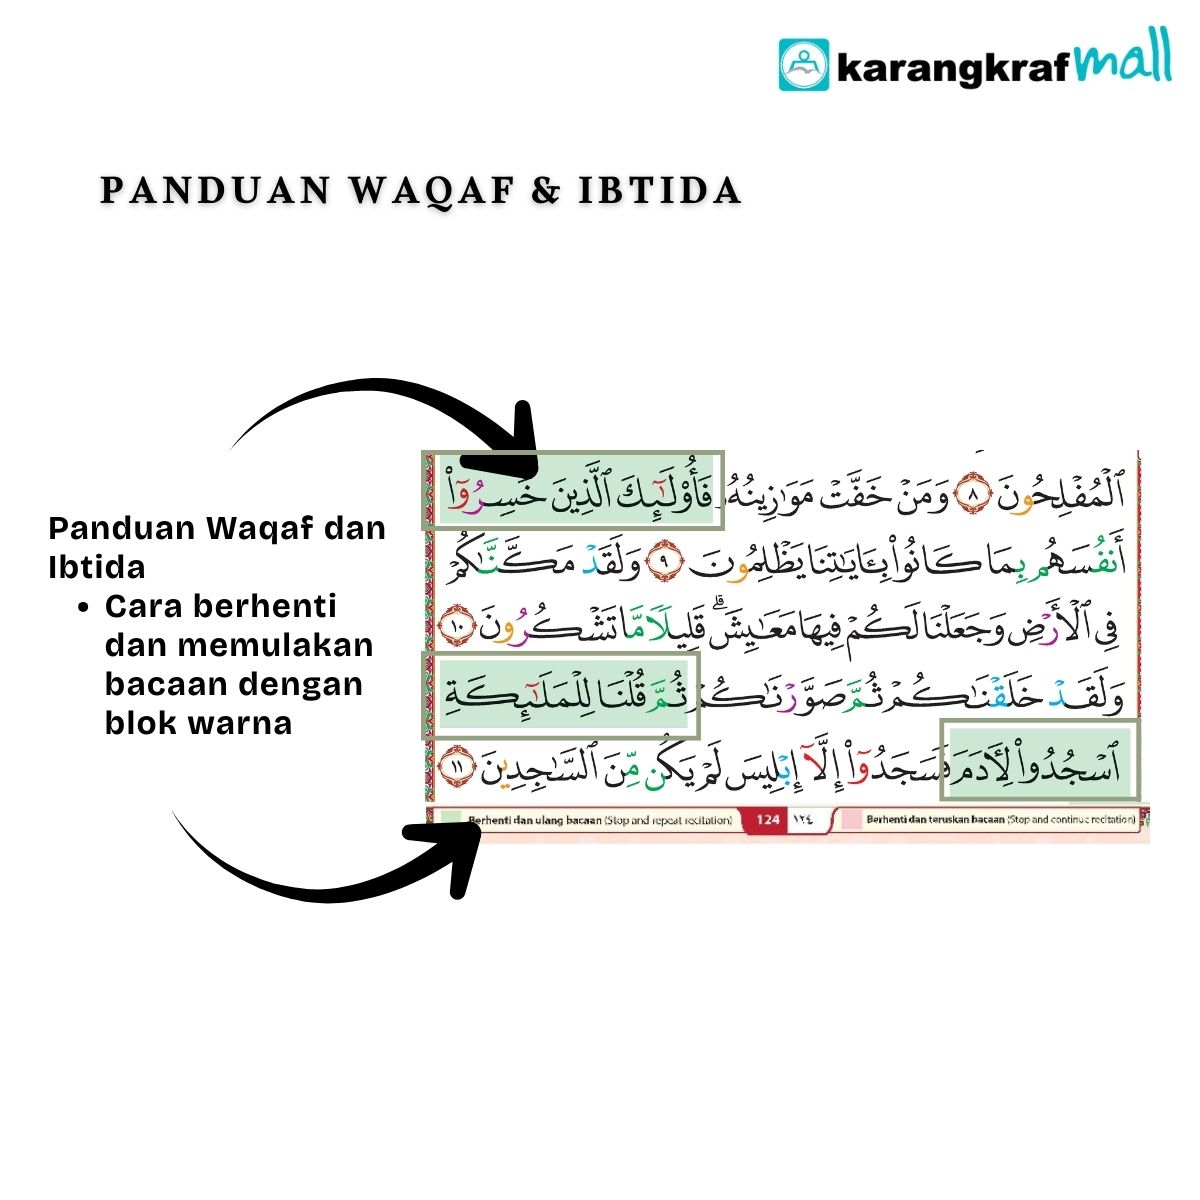 karangkraf mall
PANDUAN WAQAF & IBTIDA
Panduan Waqaf dan
Ibtida
• Cara berhenti
dan memulakan
bacaan dengan
blok warna
ٱلْمُفْلِحُونَ ٨ وَمَنْ خَفَّتْ مَوَٰزِينُهُۥ فَأُو۟لَـٰٓئِكَ ٱلَّذِينَ خَسِرُوٓا۟
أَنفُسَهُم بِمَا كَانُوا۟ بِـَٔايَـٰتِنَا يَظْلِمُونَ ٩ وَلَقَدْ مَكَّنَّـٰكُمْ
فِى ٱلْأَرْضِ وَجَعَلْنَا لَكُمْ فِيهَا مَعَـٰيِشَ ۗ قَلِيلًا مَّا تَشْكُرُونَ ١٠
وَلَقَدْ خَلَقْنَـٰكُمْ ثُمَّ صَوَّرْنَـٰكُمْ ثُمَّ قُلْنَا لِلْمَلَـٰٓئِكَةِ
ٱسْجُدُوا۟ لِـَٔادَمَ فَسَجَدُوٓا۟ إِلَّآ إِبْلِيسَ لَمْ يَكُن مِّنَ ٱلسَّـٰجِدِينَ ١١
Berhenti dan ulang bacaan (Stop and repeat recitation) 124 ١٢٤ Berhenti dan teruskan bacaan (Stop and continue recitation)